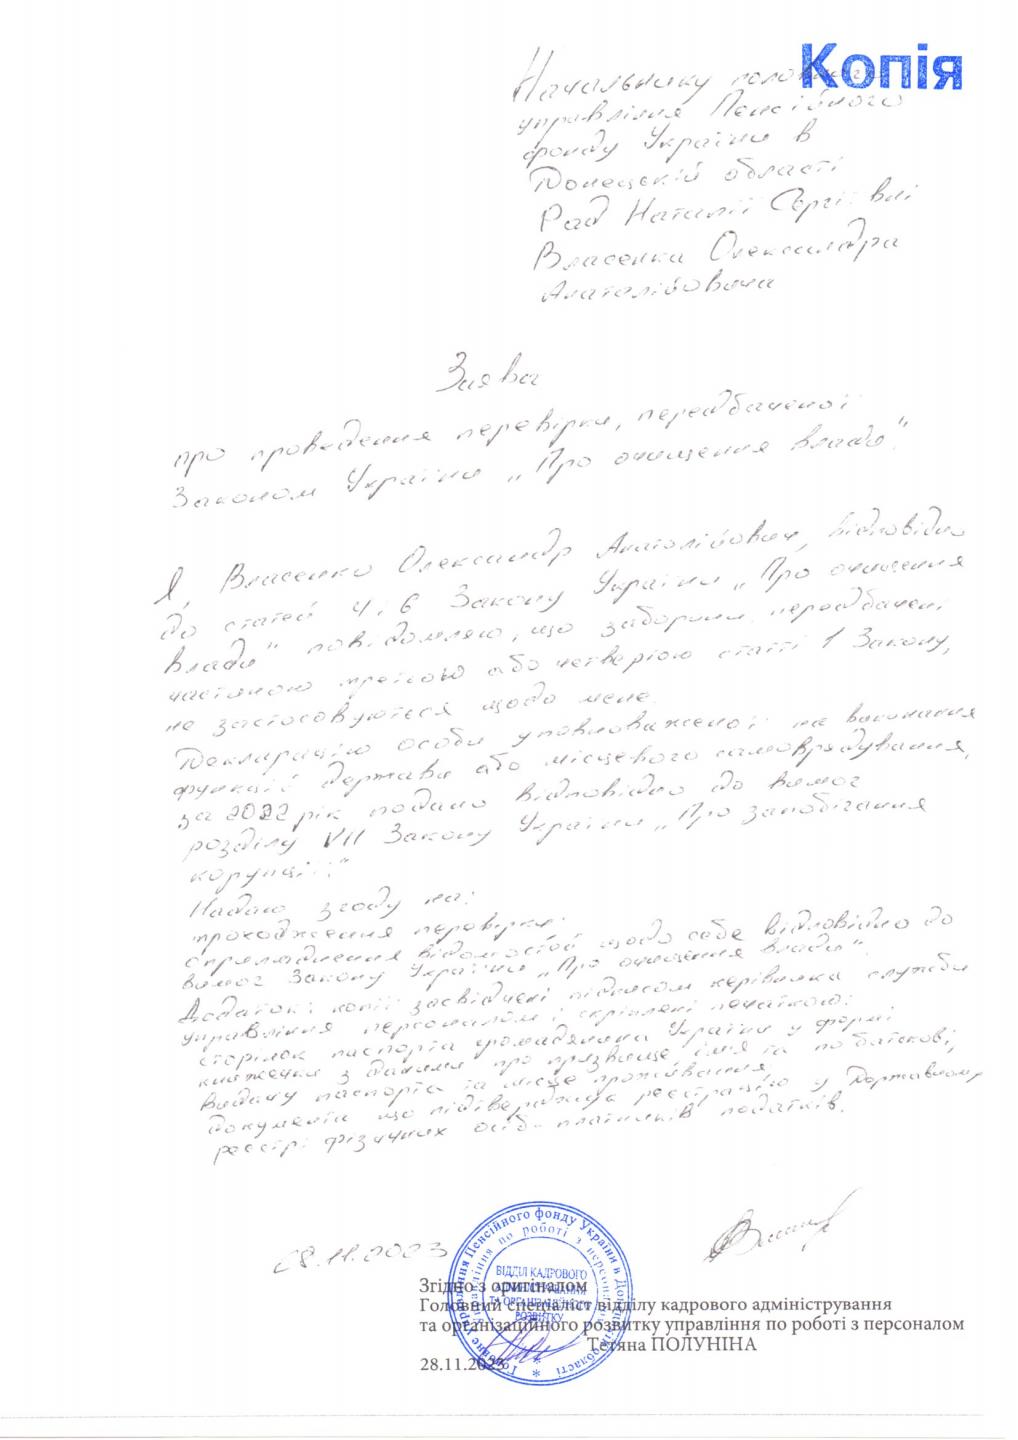 Копія
Начальнику головного
управління Пенсійного
фонду України в
Донецькій області
Рад Наталії Сергіївні
Власенка Олександра
Анатолійовича
Заява
про проведення перевірки, передбаченої
Законом України „Про очищення влади".
Я, Власенко Олександр Анатолійович, відповідно
до статей 4 і 6 Закону України „Про очищення
влади" повідомляю, що заборони, передбачені
частиною третьою або четвертою статті 1 Закону,
не застосовуються щодо мене.
Декларацію особи уповноваженої на виконання
функцій держави або місцевого самоврядування,
за 2022 рік подано відповідно до вимог
розділу VII Закону України „Про запобігання
корупції".
Надаю згоду на:
проходження перевірки;
оприлюднення відомостей щодо себе відповідно до
вимог Закону України „Про очищення влади".
Додаток: копії засвідчені підписом керівника служби
управління персоналом і скріплені печаткою:
сторінок паспорта громадянина України у формі
книжечки з даними про прізвище, ім'я та по батькові,
видачу паспорта та місце проживання,
документа що підтверджує реєстрацію у Державному
реєстрі фізичних осіб-платників податків.
28.11.2023
Головне управління Пенсійного фонду України в Донецькій області
управління по роботі з персоналом
ВІДДІЛ КАДРОВОГО
АДМІНІСТРУВАННЯ
ТА ОРГАНІЗАЦІЙНОГО
РОЗВИТКУ
Згідно з оригіналом
Головний спеціаліст відділу кадрового адміністрування
та організаційного розвитку управління по роботі з персоналом
Тетяна ПОЛУНІНА
28.11.2023